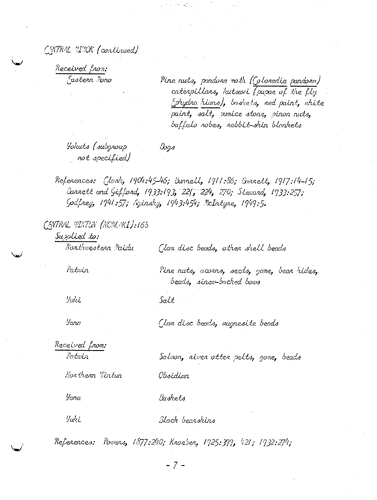 CENTRAL MIWOK (continued)
Received from:
Eastern Mono
Pine nuts, pandora moth (Coloradia pandora)
caterpillars, kutsavi (pupae of the fly
Ephydra hians), baskets, red paint, white
paint, salt, pumice stone, pinon nuts,
buffalo robes, rabbit-skin blankets
Yokuts (subgroup
not specified)
Dogs
References: Clark, 1904:45-46; Bunnell, 1911:86; Barrett, 1917:14-15;
Barrett and Gifford, 1933:193, 221, 224, 270; Steward, 1933:257;
Godfrey, 1941:57; Aginsky, 1943:454; McIntyre, 1949:5.
CENTRAL WINTUN (NOMLAKI):165
Supplied to:
Northwestern Maidu
Clam disc beads, other shell beads
Patwin
Pine nuts, acorns, seeds, game, bear hides,
beads, sinew-backed bows
Yuki
Salt
Yana
Clam disc beads, magnesite beads
Received from:
Patwin
Salmon, river otter pelts, game, beads
Northern Wintun
Obsidian
Yana
Baskets
Yuki
Black bearskins
References: Powers, 1877:240; Kroeber, 1925:399, 421; 1932:274;
- 7 -